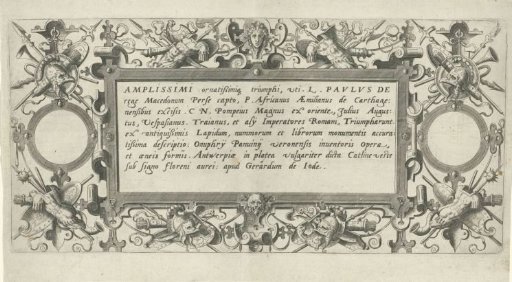 AMPLISSIMI ornatissimiq triumphi, uti L. PAVLVS DE
rege Macedonum Perse capto, P. Africanus Æmilianus de Carthage-
nensibus excisis. C N. Pompeius Magnus ex oriente, Julius Augus-
tus, Vespasianus. Traianus, et alij Imperatores Romani, Triumpharunt
ex antiquissimis Lapidum, nummorum et librorum monumentis accura-
tissima descriptio. Onuphry Panuinij veronensis inventoris opera,
et æneis formis. Antwerpiæ in platea vulgariter dicta Cathline veste
sub signo floreni aurei: apud Gerardum de Iode.